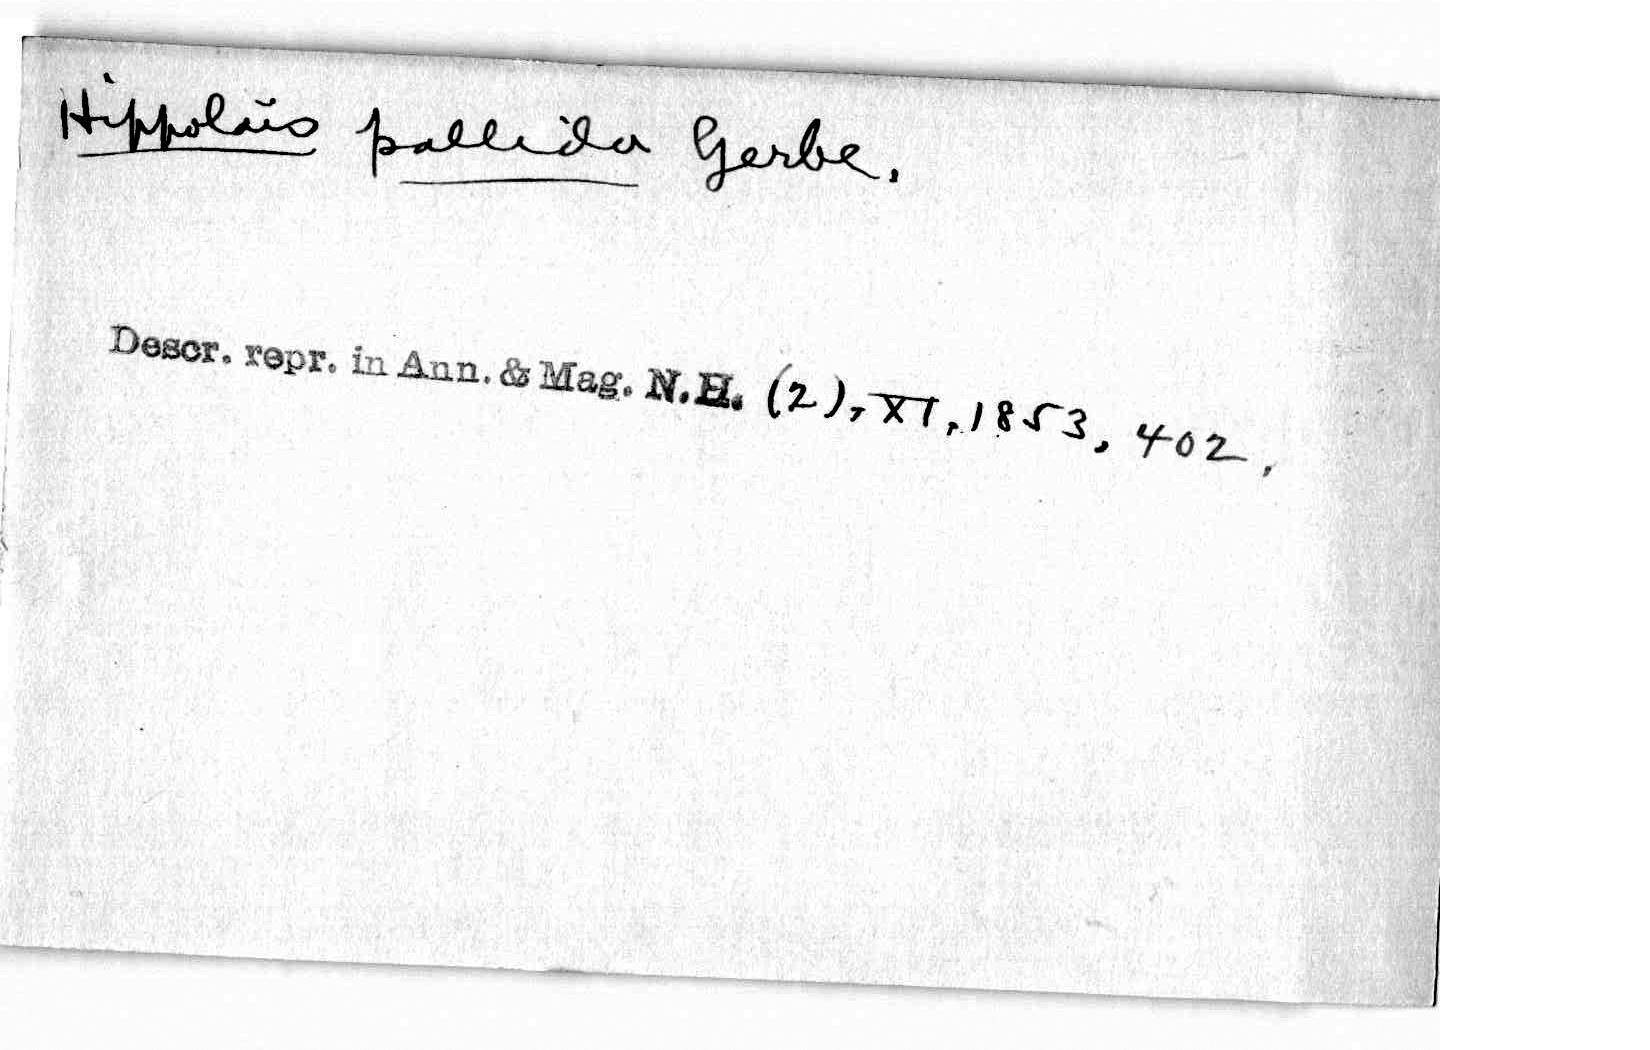 Hippolaïs pallida Gerbe.
Descr. repr. in Ann. & Mag. N.H. (2), XI, 1853, 402.